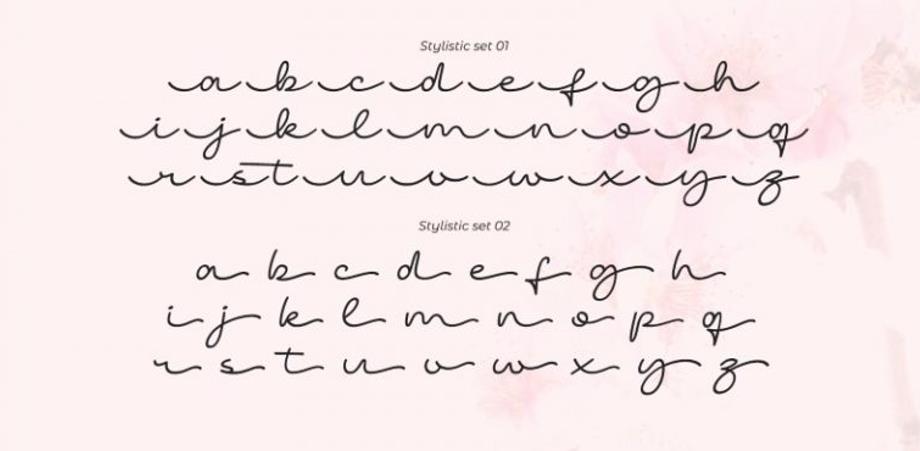 Stylistic set 01
a b c d e f g h
i j k l m n o p q
r s t u v w x y z
Stylistic set 02
a b c d e f g h
i j k l m n o p q
r s t u v w x y z